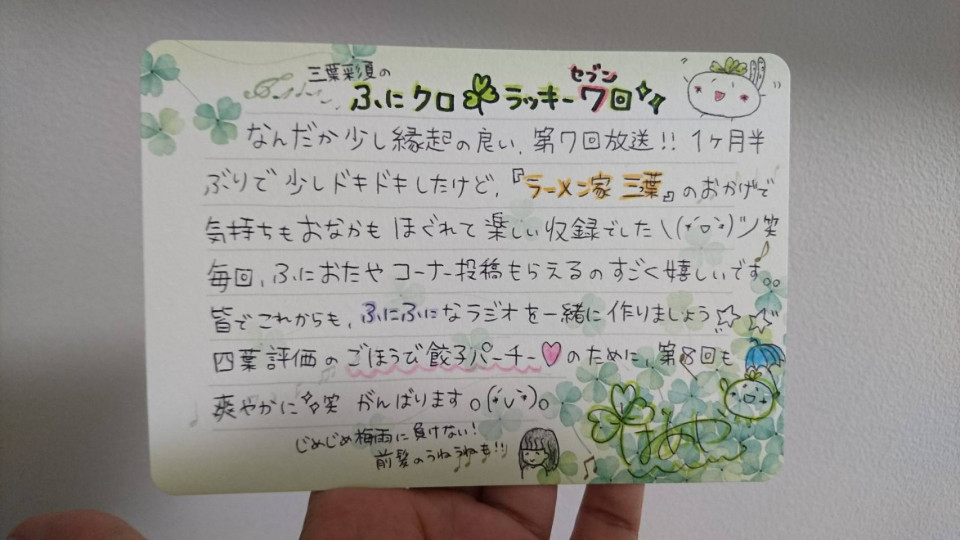 三葉彩夏の
ふにクロ☘ラッキー7回
セブン
なんだか少し縁起の良い、第7回放送!! 1ヶ月半
ぶりで少しドキドキしたけど、『ラーメン家 三葉』のおかげで
気持ちもおなかもほぐれて楽しい収録でした\(^o^)ツ笑
毎回、ふにおたやコーナー投稿もらえるのすごく嬉しいです。。
皆でこれからも、ふにふになラジオを一緒に作りましょう☆☆
四葉評価のごほうび餃子パーチー♡のために、第8回も
爽やかに笑 がんばります。(´∪`)。
じめじめ梅雨に負けない!
前髪のうねうねも!!